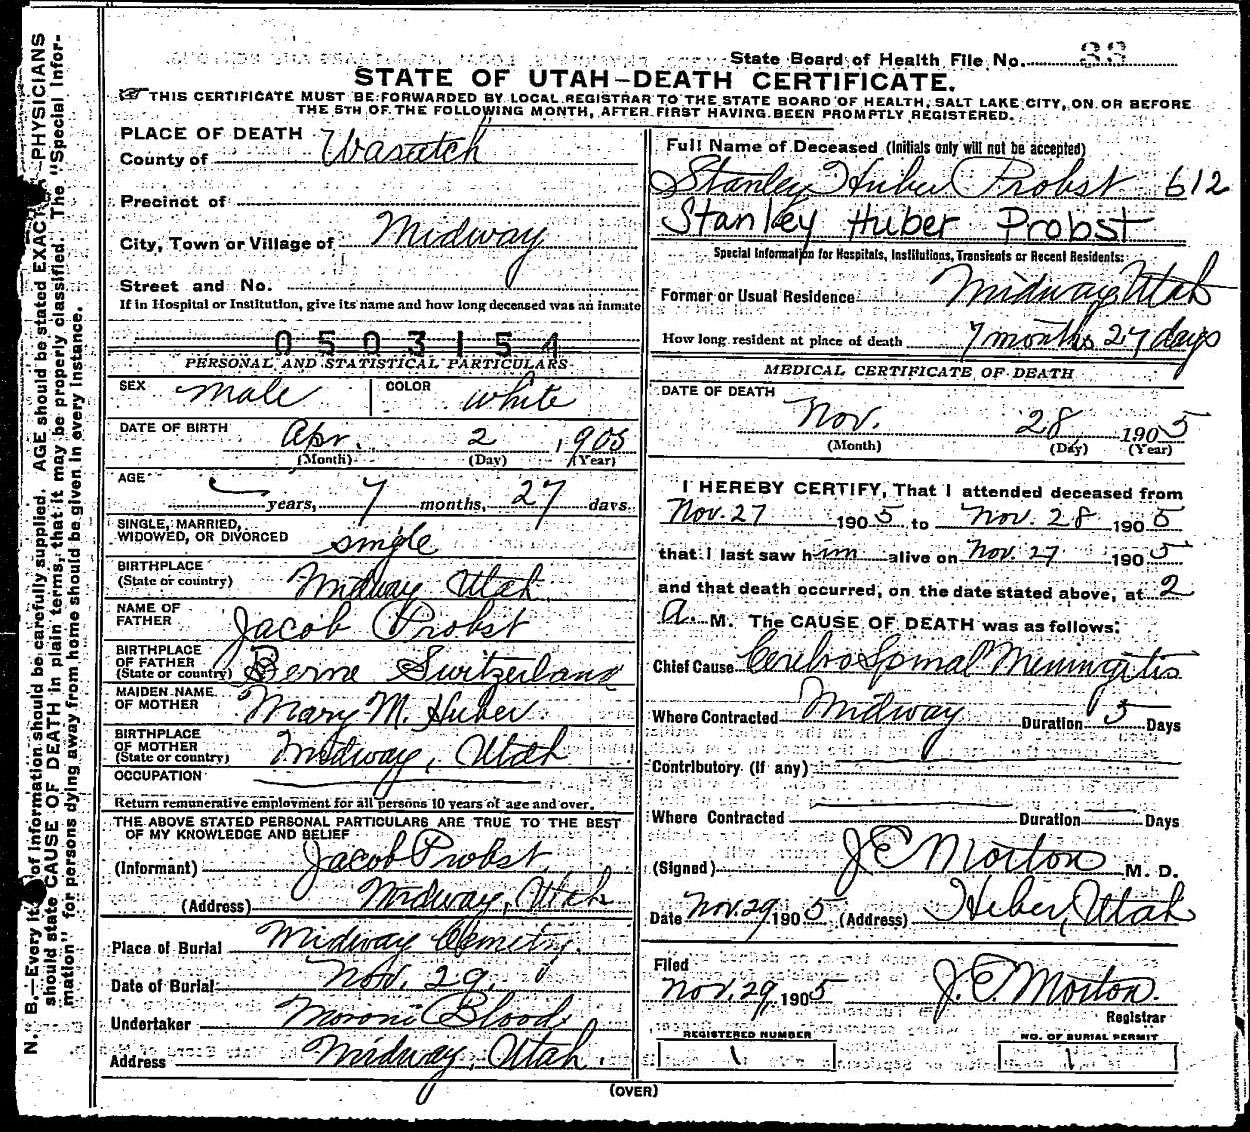 State Board of Health File No. 33
STATE OF UTAH—DEATH CERTIFICATE.
THIS CERTIFICATE MUST BE FORWARDED BY LOCAL REGISTRAR TO THE STATE BOARD OF HEALTH, SALT LAKE CITY, ON OR BEFORE
THE 5TH OF THE FOLLOWING MONTH, AFTER FIRST HAVING BEEN PROMPTLY REGISTERED.
PLACE OF DEATH
County of Wasatch
Precinct of
City, Town or Village of Midway
Street and No.
If in Hospital or Institution, give its name and how long deceased was an inmate
0503154
PERSONAL AND STATISTICAL PARTICULARS
SEX male COLOR white
DATE OF BIRTH Apr. 2 1905
(Month) (Day) (Year)
AGE years, 7 months, 27 days.
SINGLE, MARRIED,
WIDOWED, OR DIVORCED single
BIRTHPLACE
(State or country) Midway Utah.
NAME OF
FATHER Jacob Probst
BIRTHPLACE
OF FATHER
(State or country) Berne Switzerland
MAIDEN NAME
OF MOTHER Mary M. Huber
BIRTHPLACE
OF MOTHER
(State or country) Midway, Utah
OCCUPATION
Return remunerative employment for all persons 10 years of age and over.
THE ABOVE STATED PERSONAL PARTICULARS ARE TRUE TO THE BEST
OF MY KNOWLEDGE AND BELIEF
(Informant) Jacob Probst
(Address) Midway, Utah
Place of Burial Midway Cemetry.
Date of Burial Nov. 29,
Undertaker Moroni Blood
Address Midway, Utah.
Full Name of Deceased (Initials only will not be accepted)
Stanley Huber Probst 612
Stanley Huber Probst
Special Information for Hospitals, Institutions, Transients or Recent Residents:
Former or Usual Residence Midway, Utah
How long resident at place of death 7 months 27 days
MEDICAL CERTIFICATE OF DEATH
DATE OF DEATH
Nov. 28 1905
(Month) (Day) (Year)
I HEREBY CERTIFY, That I attended deceased from
Nov. 27 1905 to Nov. 28 1905
that I last saw him alive on Nov. 27 1905
and that death occurred, on the date stated above, at 2
a. M. The CAUSE OF DEATH was as follows:
Chief Cause Cerebro Spinal Meningitis
Where Contracted Midway Duration 5 Days
Contributory (If any)
Where Contracted Duration Days
(Signed) J E Morton M. D.
Date Nov. 29 1905 (Address) Heber, Utah
Filed
Nov. 29, 1905 J. E. Morton.
Registrar
REGISTERED NUMBER NO. OF BURIAL PERMIT
1 1
(OVER)
N. B.—Every it of information should be carefully supplied. AGE should be stated EXAC PHYSICIANS
should state CAUSE OF DEATH in plain terms, that it may be properly classified. The "Special Infor-
mation" for persons dying away from home should be given in every instance.